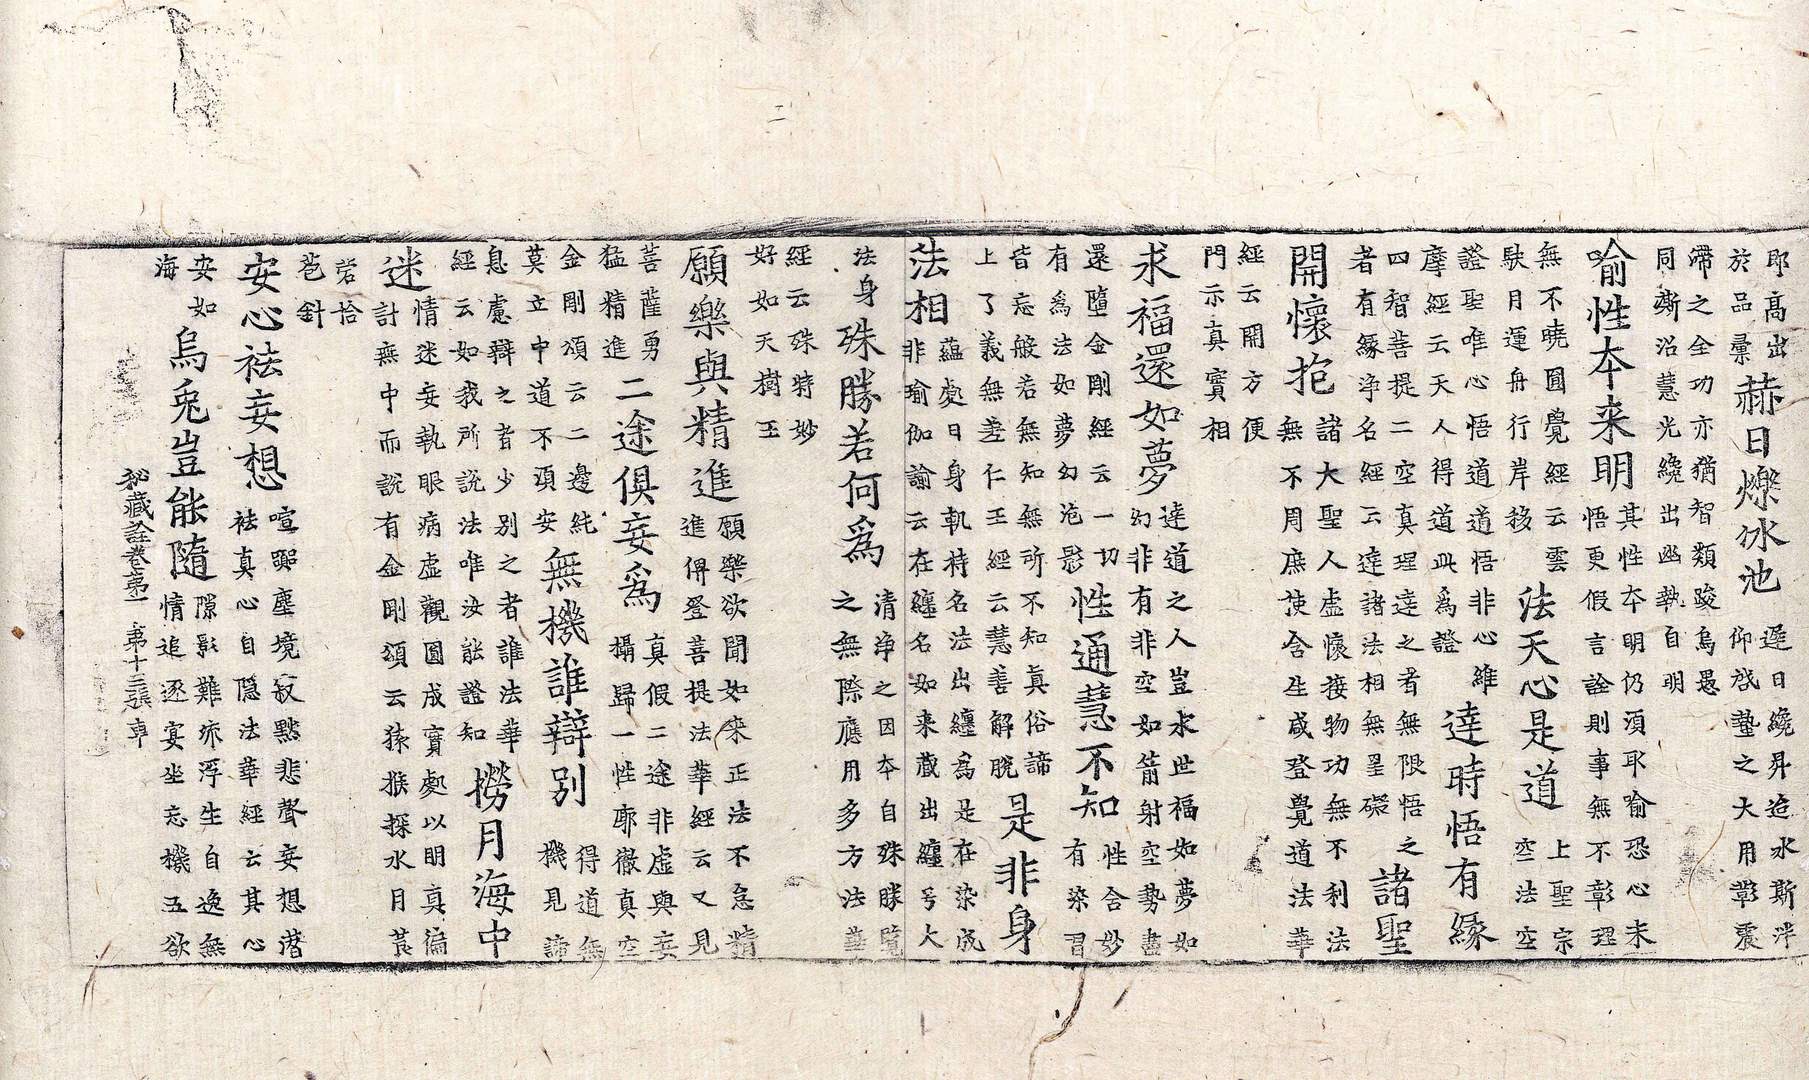 耶高出
於品彙
赫日爍冰池
遲日纔昇迨水斯泮
仰啓蟄之大用彰震
滯之全功亦猶智類踆烏愚
同澌沼慧光纔出幽執自明
喻性本来明
其性本明仍湏耶喻恐心未
悟更假言詮則事無不彰理
無不曉圓覺經云雲
駛月運舟行岸移
法天心是道
上聖宗
空法空
證聖唯心悟道道悟非心維
摩經云天人得道此為證
達時悟有緣
四智菩提二空真理達之者無限悟之
者有緣淨名經云達諸法相無罣礙
諸聖
開懷抱
諸大聖人虛懷接物功無不利法
無不周庶使含生咸登覺道法華
經云開方便
門示真實相
求福還如夢
達道之人豈求世福如夢如
幻非有非空如箭射空勢盡
還墮金剛經云一切
有為法如夢幻泡影
性通慧不知
性含妙
有染習
皆忘般若無知無所不知真俗諦
上了義無差仁王經云慧善解脫
是非身
法相
蘊處曰身軌持名法出纏為是在染成
非瑜伽論云在纏名如来藏出纏号大
法身
殊勝若何為
清淨之因本自殊勝覽
之無際應用多方法華
經云殊特妙
好如天樹王
願樂與精進
願樂欲聞如來正法不怠精
進俾登菩提法華經云又見
菩薩勇
猛精進
二途俱妄為
真假二途非虛與妄
攝歸一性廓徹真空
金剛頌云二邊純
莫立中道不湏安
無機誰辯別
得道無
機見諦
息慮辯之者少別之者誰法華
經云如我所說法唯汝能證知
撈月海中
迷
情迷妄執眼病虛觀圓成實處以明真徧
計無中而說有金剛頌云猿猴探水月莨
菪拾
花針
安心祛妄想
喧熙塵境寂默悲聲妄想潛
祛真心自隱法華經云其心
安如
海
烏兔豈能隨
隙影難亦浮生自逸無
情追逐宴坐忘機五欲
秘藏詮卷苐一 苐十三張 車